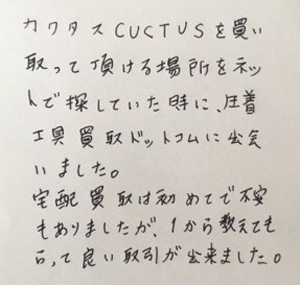 カクタスCUCTUSを買い
取って頂ける場所をネッ
トで探していた時に、圧着
工具買取ドットコムに出会
いました。
宅配買取は初めてで不安
もありましたが、1から教えても
らって良い取引が出来ました。